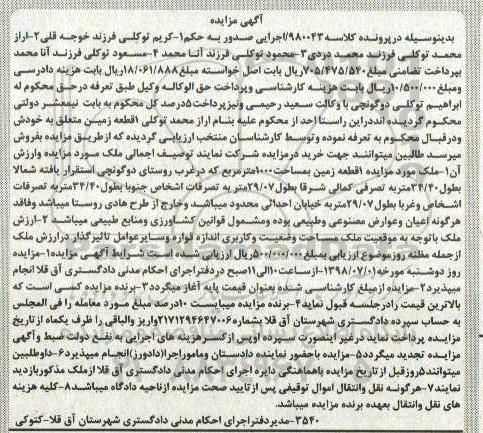 آگهی مزایده
بدینوسیله در پرونده کلاسه ۹۸۰۰۴۳/اجرایی صدور به حکم ۱-کریم توکلی فرزند خوجه قلی ۲-آراز
محمد توکلی فرزند محمد دردی ۳-محمود توکلی فرزند آنا محمد ۴-مسعود توکلی فرزند آنا محمد
بپرداخت تضامنی مبلغ ۷۰۵/۴۷۵/۵۴۰ریال بابت اصل خواسته مبلغ ۱۸/۰۶۱/۸۸۸ریال بابت هزینه دادرسی
ومبلغ ۱۰/۵۰۰/۰۰۰ریال بابت هزینه کارشناسی وپرداخت حق الوکاله وکیل طبق تعرفه درحق محکوم له
ابراهیم توکلی دوگونچی با وکالت سعید رحیمی ونیز پرداخت ۵درصد کل محکوم به بابت نیمعشر دولتی
محکوم گردیده اند دراین راستا احد از محکوم علیه بنام آراز محمد توکلی ۱قطعه زمین متعلق به خودش
ودرقبال محکوم به تعرفه نموده وتوسط کارشناسان منتخب ارزیابی گردیده که ازطریق مزایده بفروش
میرسد طالبین میتوانند جهت خرید درمزایده شرکت نمایند توصیف اجمالی ملک مورد مزایده وارزش
آن ۱-ملک مورد مزایده ۱قطعه زمین بمساحت ۱۰۰۰مترمربع که درغرب روستای دوگونچی استقرار یافته شمالا
بطول ۳۴/۴۰متربه تصرفی کمالی شرقا بطول ۲۹/۰۷متربه تصرفات اشخاص جنوبا بطول ۳۴/۴۰متربه تصرفات
اشخاص وغربا بطول ۲۹/۰۷متربه خیابان احداثی محدود میباشد وخارج از طرح هادی روستا میباشد وفاقد
هرگونه اعیان وعوارض مصنوعی وطبیعی بوده ومشمول قوانین کشاورزی ومنابع طبیعی میباشد ۲-ارزش
ملک باتوجه به موقعیت ملک مساحت وضعیت وکاربری اندازه قواره وسایرعوامل تاثیرگذار درارزش ملک
ازجمله مظنه روزموضوع ارزیابی بمبلغ ۵۰۰/۰۰۰/۰۰۰ریال ارزیابی شده است شرایط آگهی مزایده ۱-مزایده
روز دوشنبه مورخه ۱۳۹۸/۰۷/۰۱-ازساعت ۱۰الی ۱۱صبح دردفتراجرای احکام مدنی دادگستری آق قلا انجام
میپذیرد ۲-مزایده ازمبلغ کارشناسی شده بعنوان قیمت پایه آغاز میگردد ۳-برنده مزایده کسی است که
بالاترین قیمت رادرجلسه قبول نماید ۴-برنده مزایده میبایست ۱۰درصد مبلغ مورد معامله را فی المجلس
به حساب سپرده دادگستری شهرستان آق قلا بشماره ۲۱۷۱۲۹۴۶۴۷۰۰۶واریز والباقی را ظرف یکماه از تاریخ
مزایده پرداخت نماید درغیر اینصورت سپرده اوپس ازکسرهزینه های اجرایی به نفع دولت ضبط وآگهی
مزایده تجدید میگردد ۵-مزایده باحضور نماینده دادستان وماموراجرا(دادورز)انجام میپذیرد ۶-داوطلبین
میتوانند ۵روزقبل از تاریخ مزایده باهماهنگی دایره اجرای احکام مدنی دادگستری آق قلا ازملک مذکوربازدید
نمایند ۷-هرگونه نقل وانتقال اموال توقیفی پس از تایید صحت مزایده ازناحیه دادگاه میباشد ۸-کلیه هزینه
های نقل وانتقال بعهده برنده مزایده میباشد.
۳۵۴۰-مدیردفتراجرای احکام مدنی دادگستری شهرستان آق قلا-کتوکی